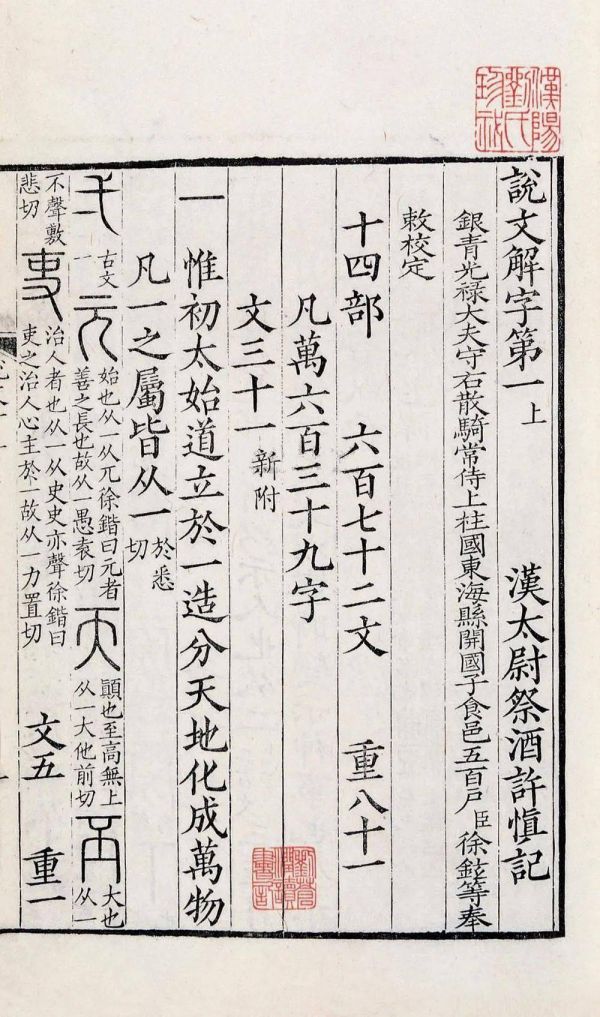 漢陽
劉氏
說文解字第一上 漢太尉祭酒許慎記
銀青光祿大夫守右散騎常侍上柱國東海縣開國子食邑五百戶臣徐鉉等奉
敕校定
十四部 六百七十二文 重八十一
凡萬六百三十九字
文三十一 新附
一 惟初太始道立於一造分天地化成萬物
凡一之屬皆从一 於悉切
弌 古文一 元 始也从一从兀徐鍇曰元者善之長也故从一愚袁切 天 顚也至高無上从一大他前切 丕 大也从一
不聲敷悲切 吏 治人者也从一从史史亦聲徐鍇曰吏之治人心主於一故从一力置切 文五 重一